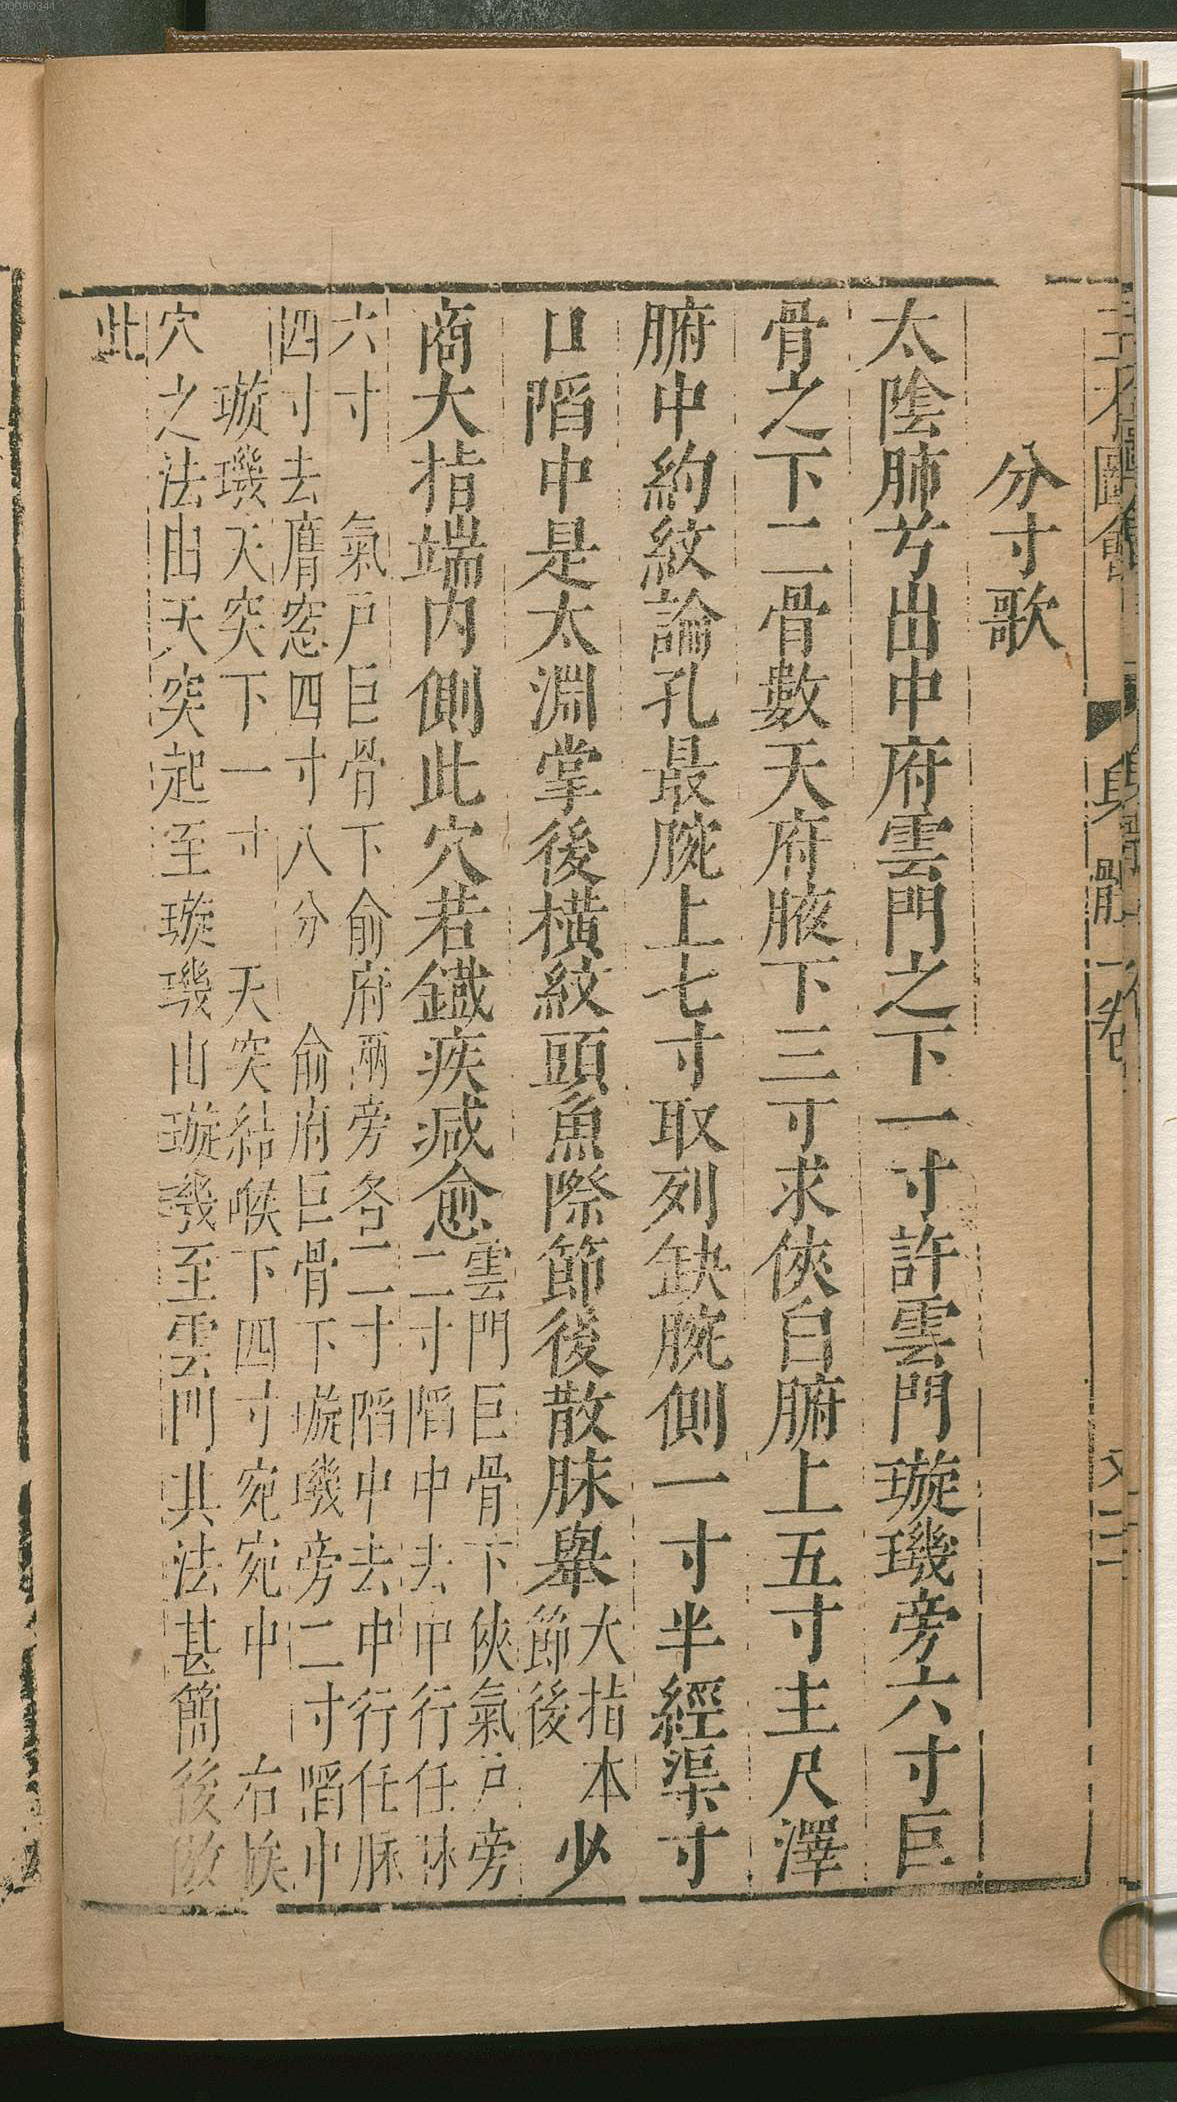 00080341
三才圖會
身體一卷
分寸歌
太陰肺兮出中府雲門之下一寸許雲門璇璣旁六寸巨
骨之下二骨數天府腋下三寸求俠白腑上五寸主尺澤
腑中約紋論孔最腕上七寸取列缺腕側一寸半經渠寸
口陷中是太淵掌後橫紋頭魚際節後散脉舉
大指本
節後
少
商大指端內側此穴若鍼疾減愈
雲門巨骨下俠氣戶旁
二寸陷中去中行任脉
六寸 氣戶巨骨下俞府兩旁各二寸陷中去中行任脉
四寸去膺窓四寸八分 俞府巨骨下璇璣旁二寸陷中
璇璣天突下一寸 天突結喉下四寸宛宛中 右挨
穴之法由天突起至璇璣由璇璣至雲門其法甚簡後做
此